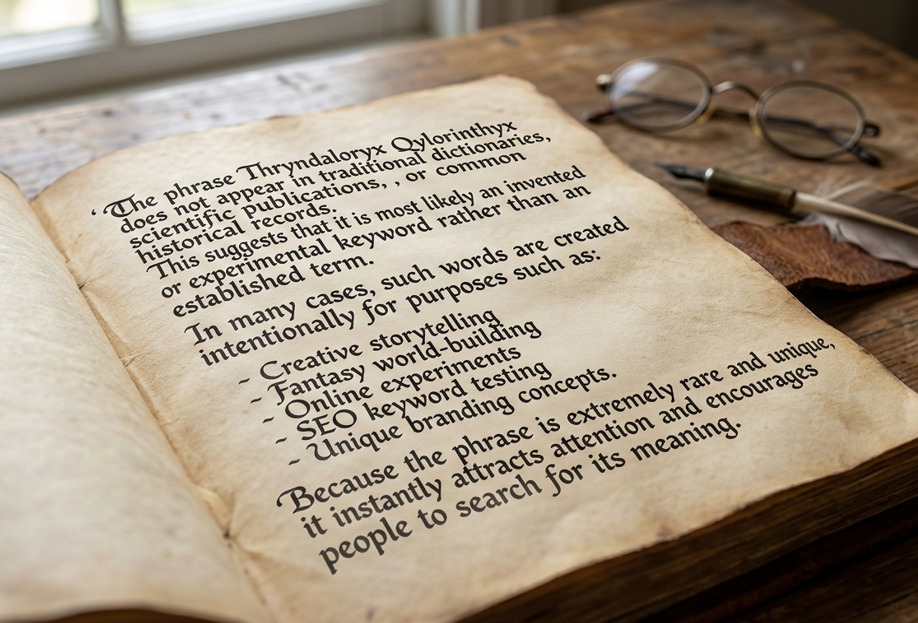 ‘The phrase Thryndaloryx Qylorinthyx
does not appear in traditional dictionaries,
scientific publications, , or common
historical records.
This suggests that it is most likely an invented
or experimental keyword rather than an
established term.
In many cases, such words are created
intentionally for purposes such as:
~ Creative storytelling
~ Fantasy world-building
~ Online experiments
~ SEO keyword testing
~ Unique branding concepts.
Because the phrase is extremely rare and unique,
it instantly attracts attention and encourages
people to search for its meaning.